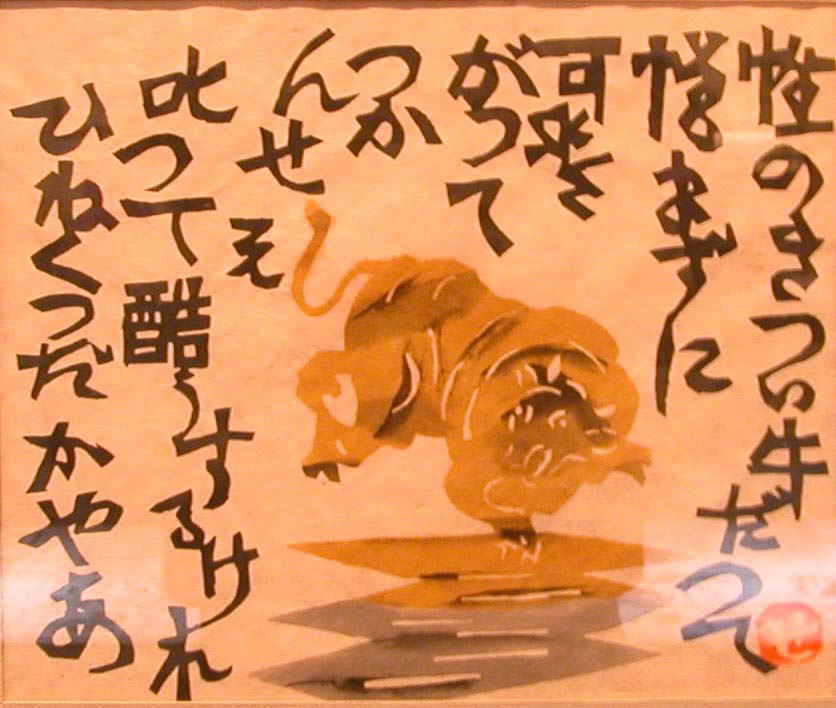 性のきつい牛だって
憎まずに
可愛
がって
つか
んせえ
叱って酷うするけれ
ひねくっだかやあ